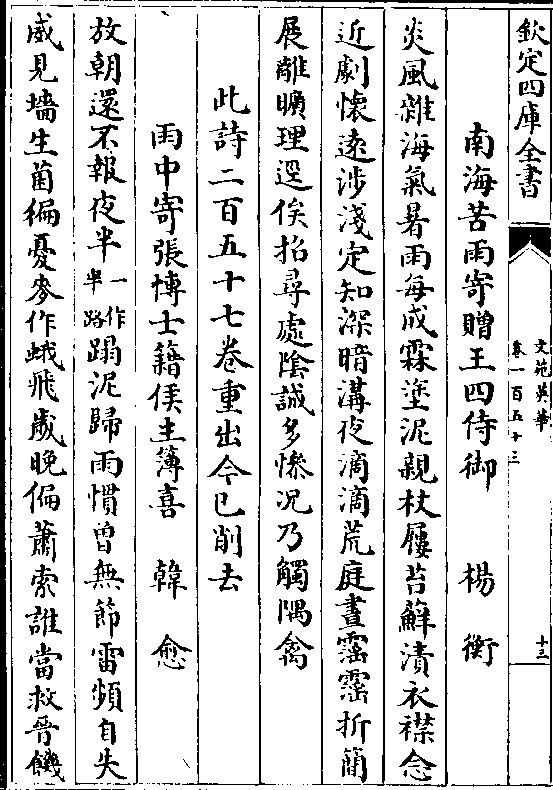 欽定四庫全書
文苑英華
卷一百五十三
十三
南海苦雨寄贈王四侍御　楊衡
炎風雜海氣暑雨每成霖塗泥親杖屨苔蘚漬衣襟念
近劇懷遠涉淺定知深暗溝夜滴滴荒庭晝霪霪折簡
展離曠理逕俟招尋處陰誠多慘況乃觸隅禽
此詩二百五十七卷重出今已削去
雨中寄張博士籍侯主簿喜　韓愈
放朝還不報夜半一作半路蹋泥歸雨慣曾無節雷頻自失
威見墻生菌徧憂麥作蛾飛歲晚偏蕭索誰當救晉饑